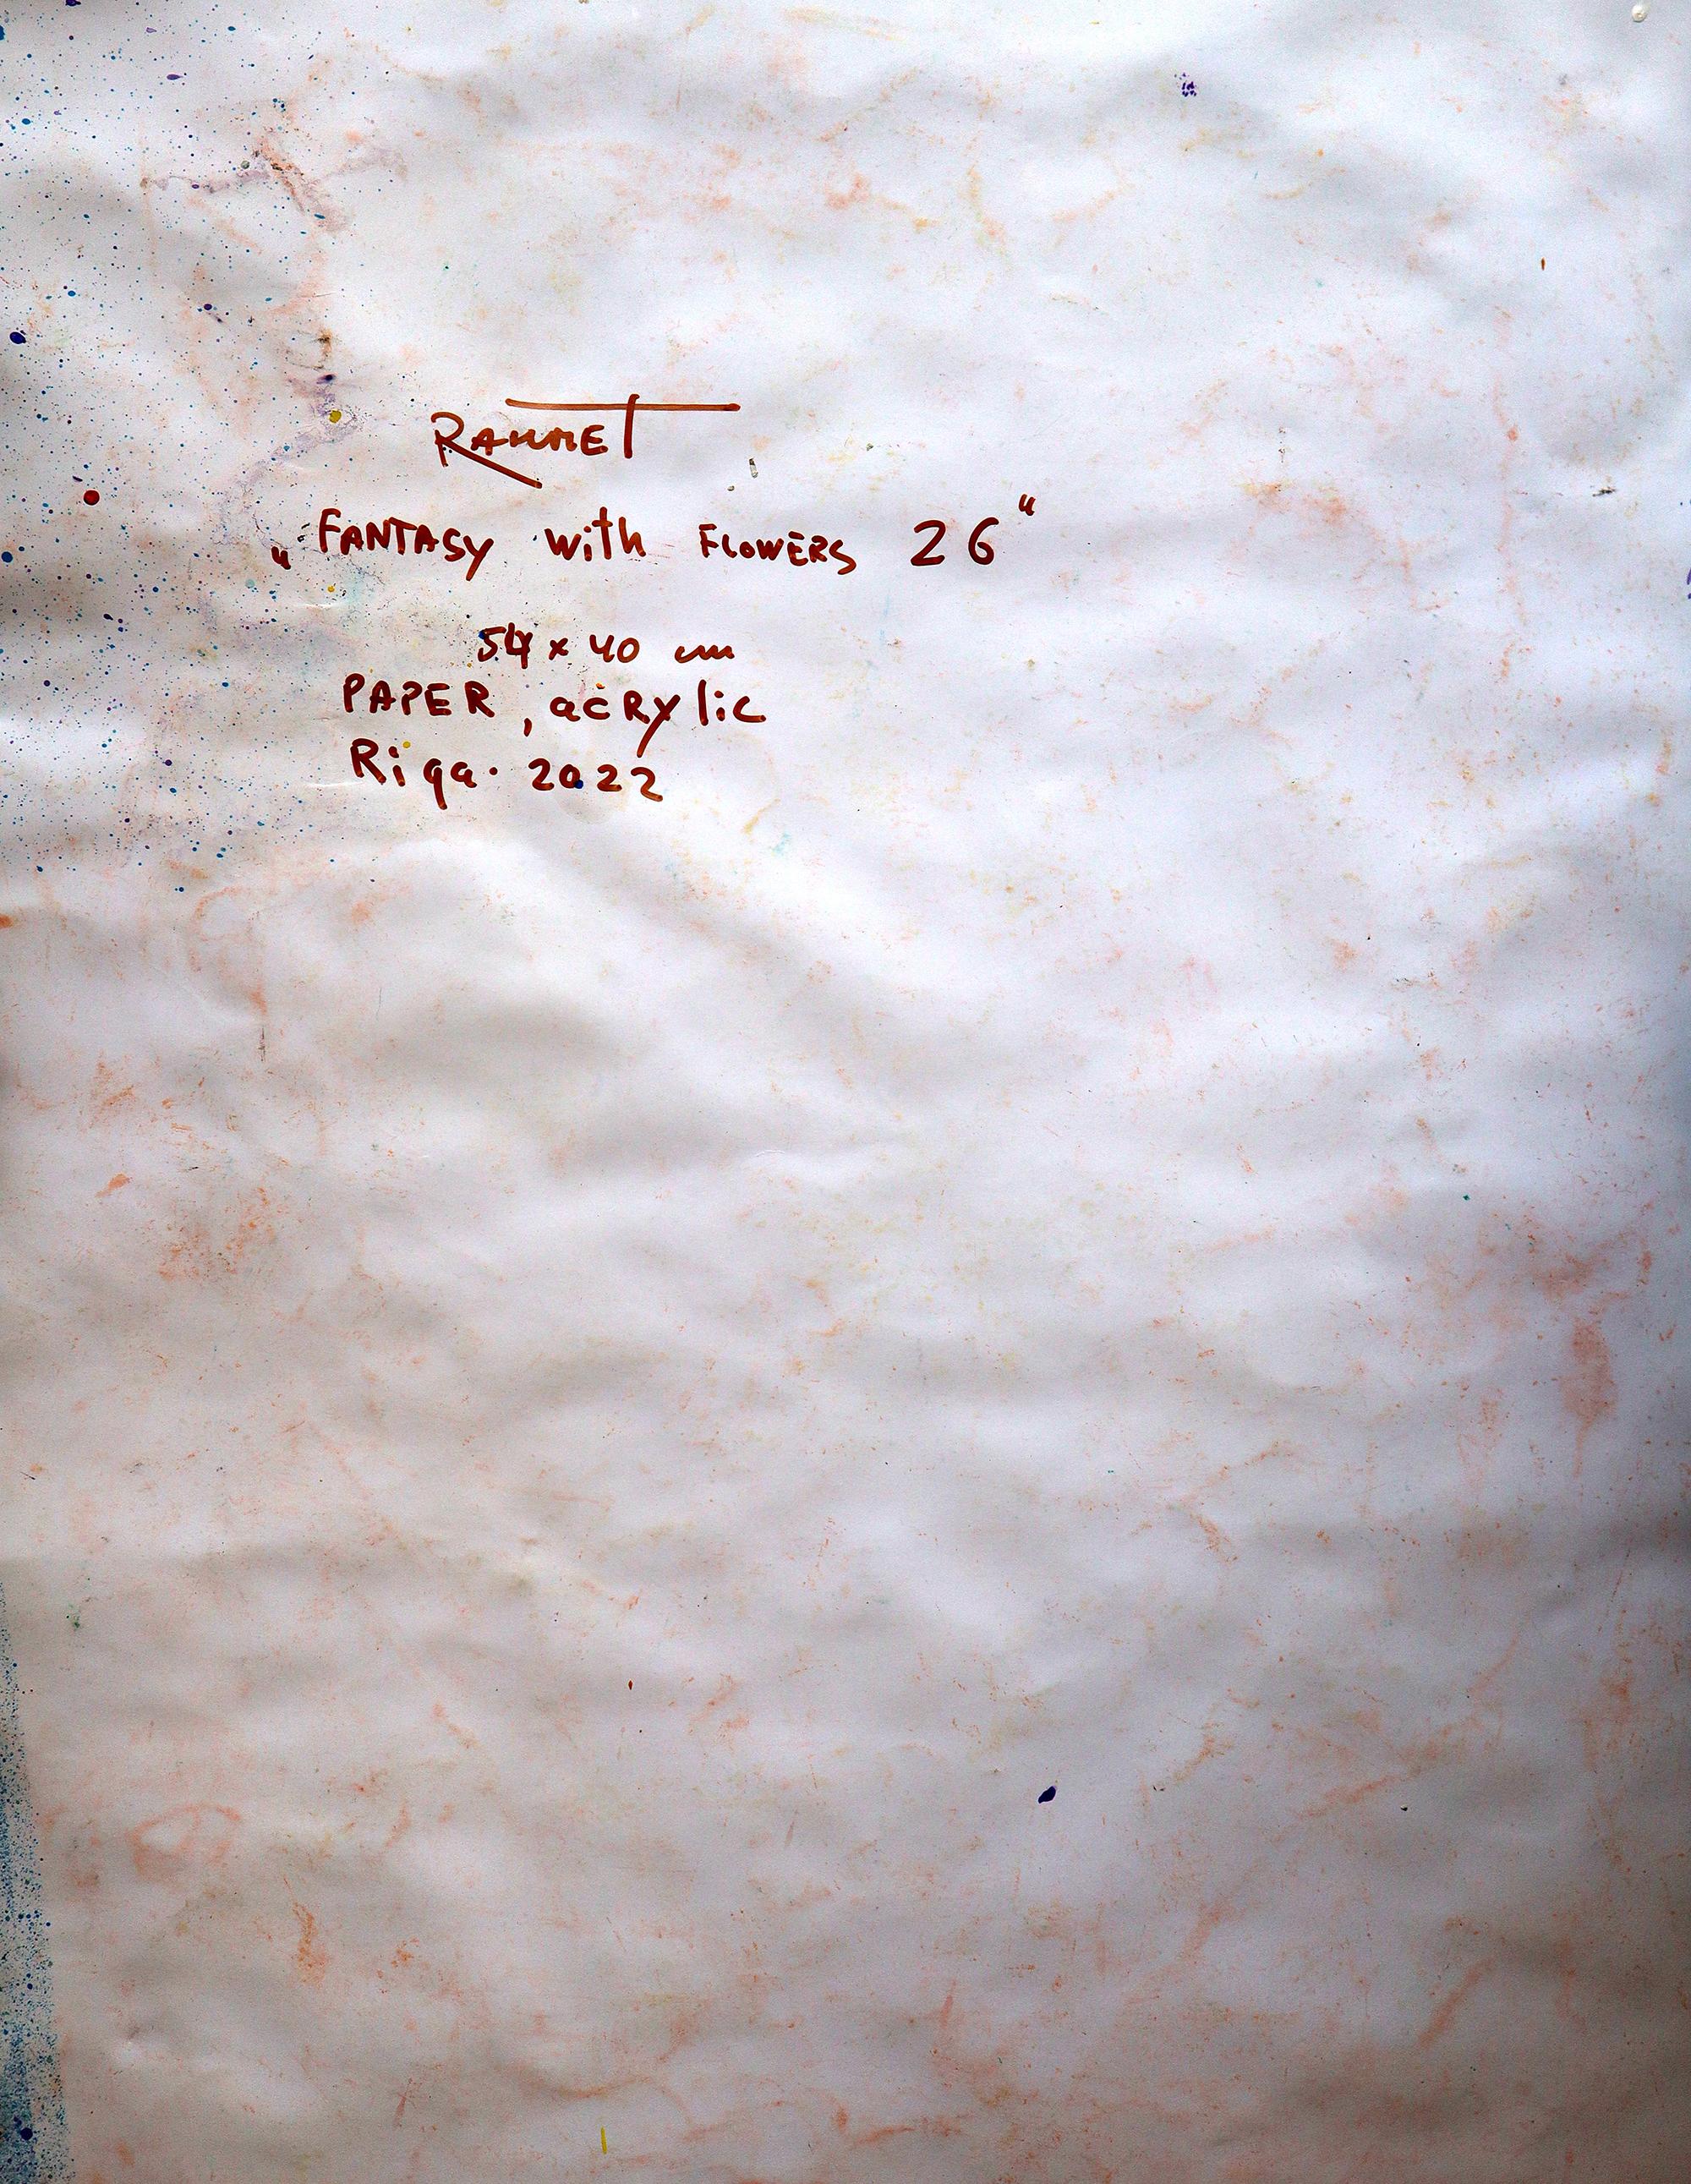 RAHMET
„FANTASY with FLOWERS 26“
54 x 40 cm
PAPER, acRYlic
Riga. 2022